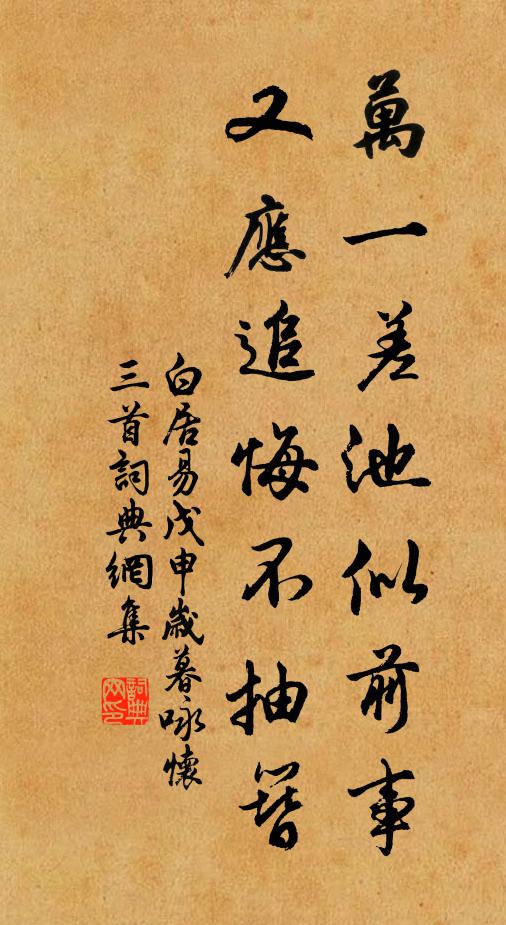 萬一差池似前事
又應追悔不抽簪
白居易戊申歲暮咏懷
三首詞典網集
詞典網印